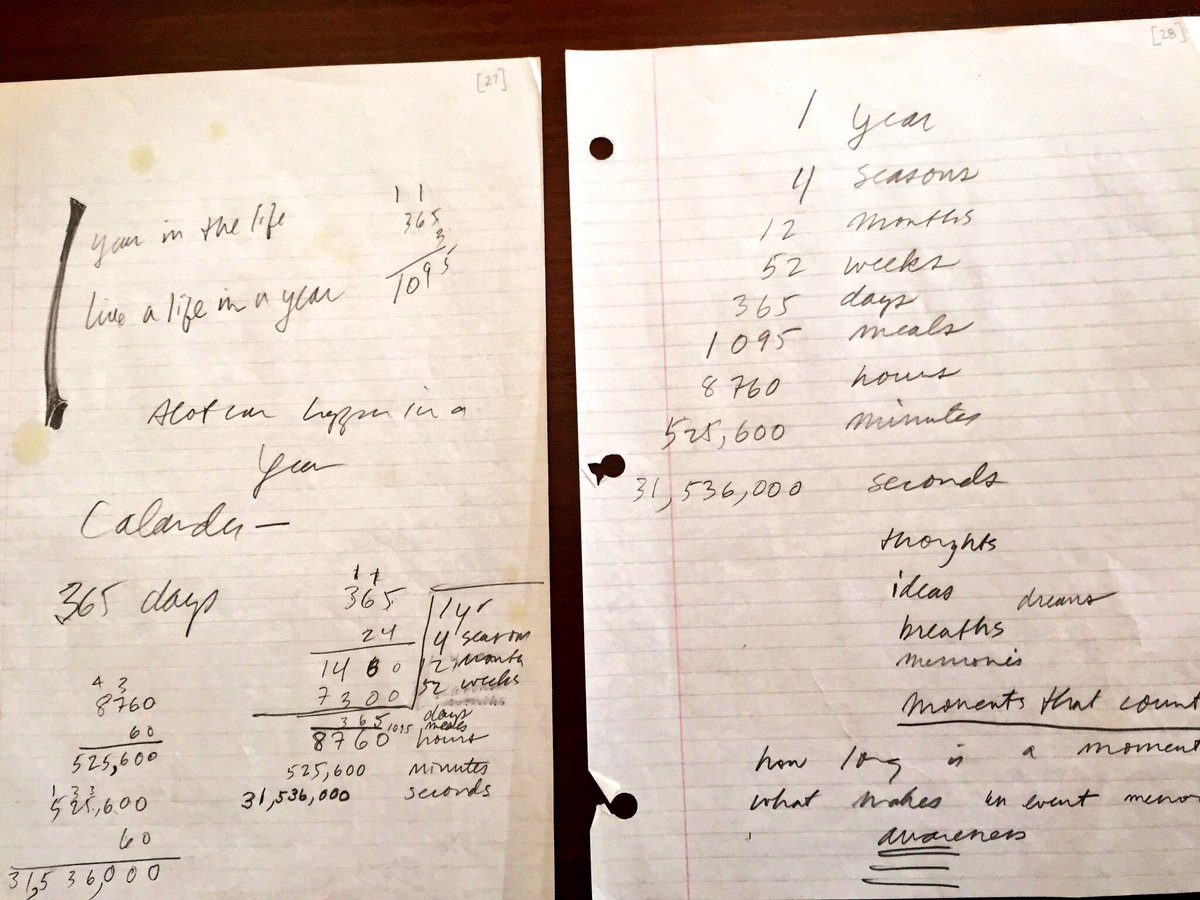 [27]
year in the life
live a life in a year
1 1
365
3
1095
Alot can happen in a
Year
Calander—
365 days
1 1
365
24
1460
7300
8760
1 yr
4 seasons
12 months
52 weeks
365 days
1095 meals
hours
525,600 minutes
31,536,000 seconds
4 3
8760
60
525,600
1 3 3
525,600
60
31,536,000
[28]
1 year
4 seasons
12 months
52 weeks
365 days
1095 meals
8760 hours
525,600 minutes
31,536,000 seconds
thoughts
ideas dreams
breaths
memories
moments that count
how long is a moment
what makes an event
awareness